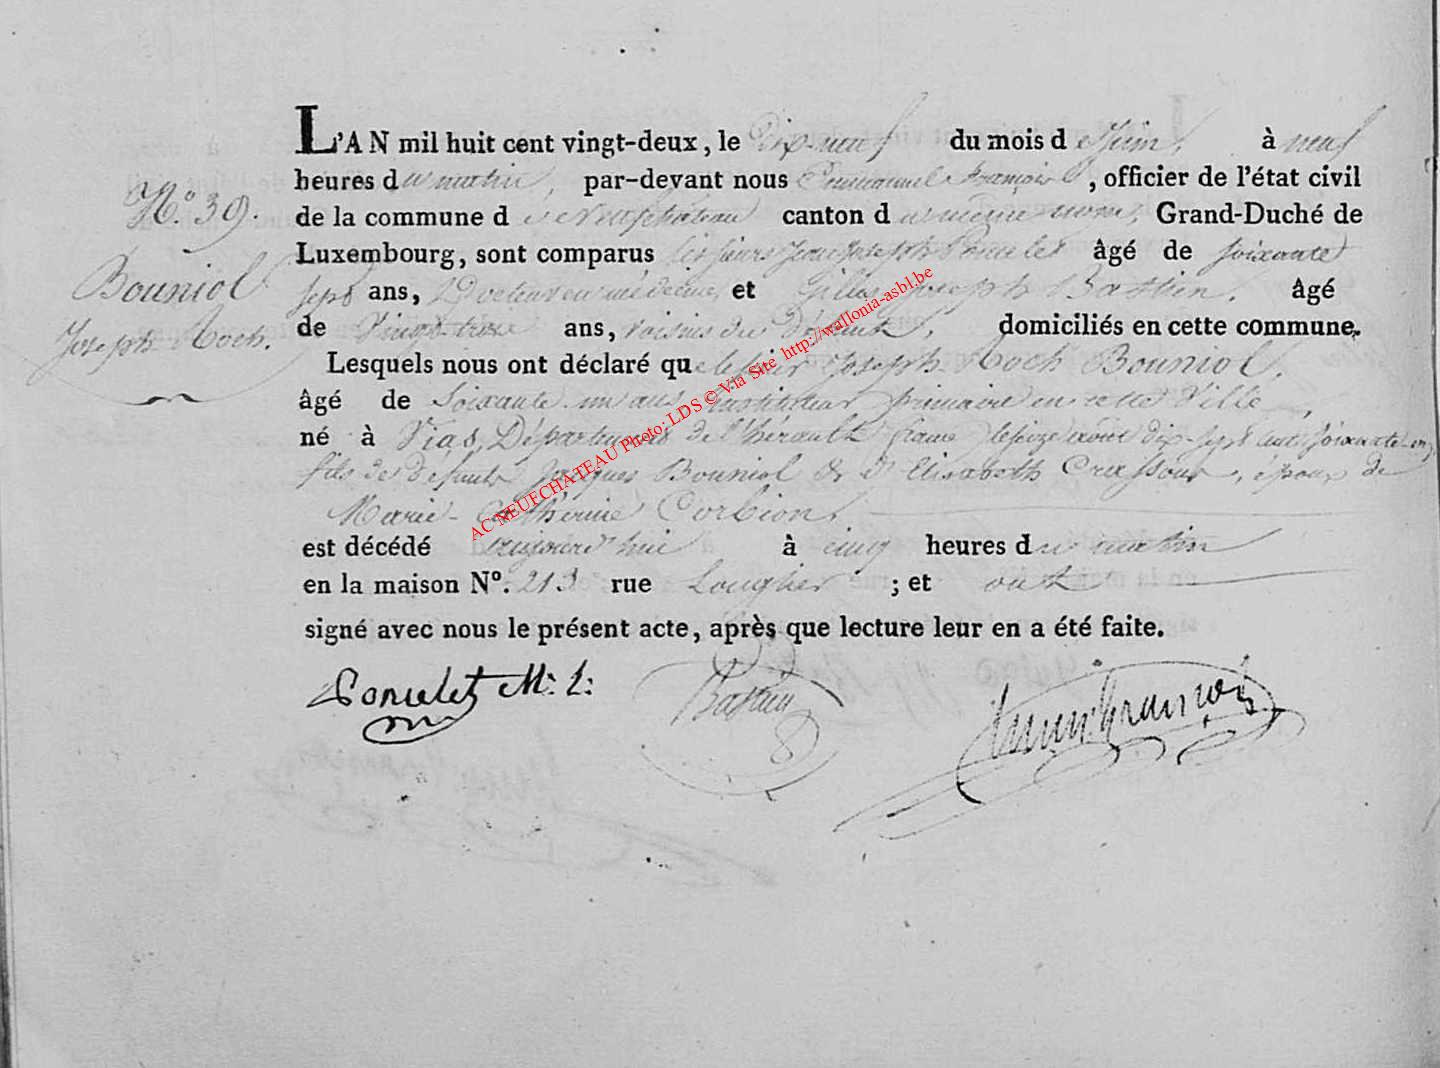 L'AN mil huit cent vingt-deux, le Dix-neuf du mois de Juin, à neuf
heures du matin, par-devant nous Emmanuel François, officier de l'état civil
N.º 39.
de la commune de Neufchateau canton du même nom, Grand-Duché de
Luxembourg, sont comparus les sieurs Jean Joseph Poncelet âgé de soixante
Bouniol
sept ans, Docteur en médecine, et Gilles Joseph Bastien, âgé
Joseph Roch.
de Vingt trois ans, voisins du Défunt, domiciliés en cette commune.
Lesquels nous ont déclaré que le sieur Joseph Roch Bouniol,
âgé de Soixante un ans instituteur primaire en cette Ville,
né à Vias, Département de l'hérault france le seize août dix-sept cent soixante-un,
fils de défunts Jacques Bouniol & d'Elisabeth, époux de
Marie-Catherine Corbion,
est décédé aujourd'hui à cinq heures du matin
en la maison Nº. 213 rue ; et ont
signé avec nous le présent acte, après que lecture leur en a été faite.
Poncelet M: L: Bastien Emm: François
AC NEUFCHATEAU Photo: LDS © Via Site http://wallonia-asbl.be